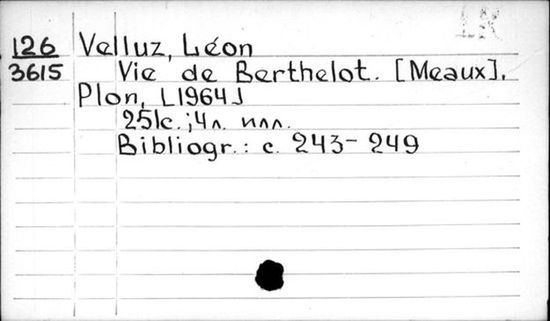 126 Velluz, Léon
3615 Vie de Berthelot. [Meaux],
Plon, [1964]
251с.; 4л. илл.
Bibliogr.: с. 243-249